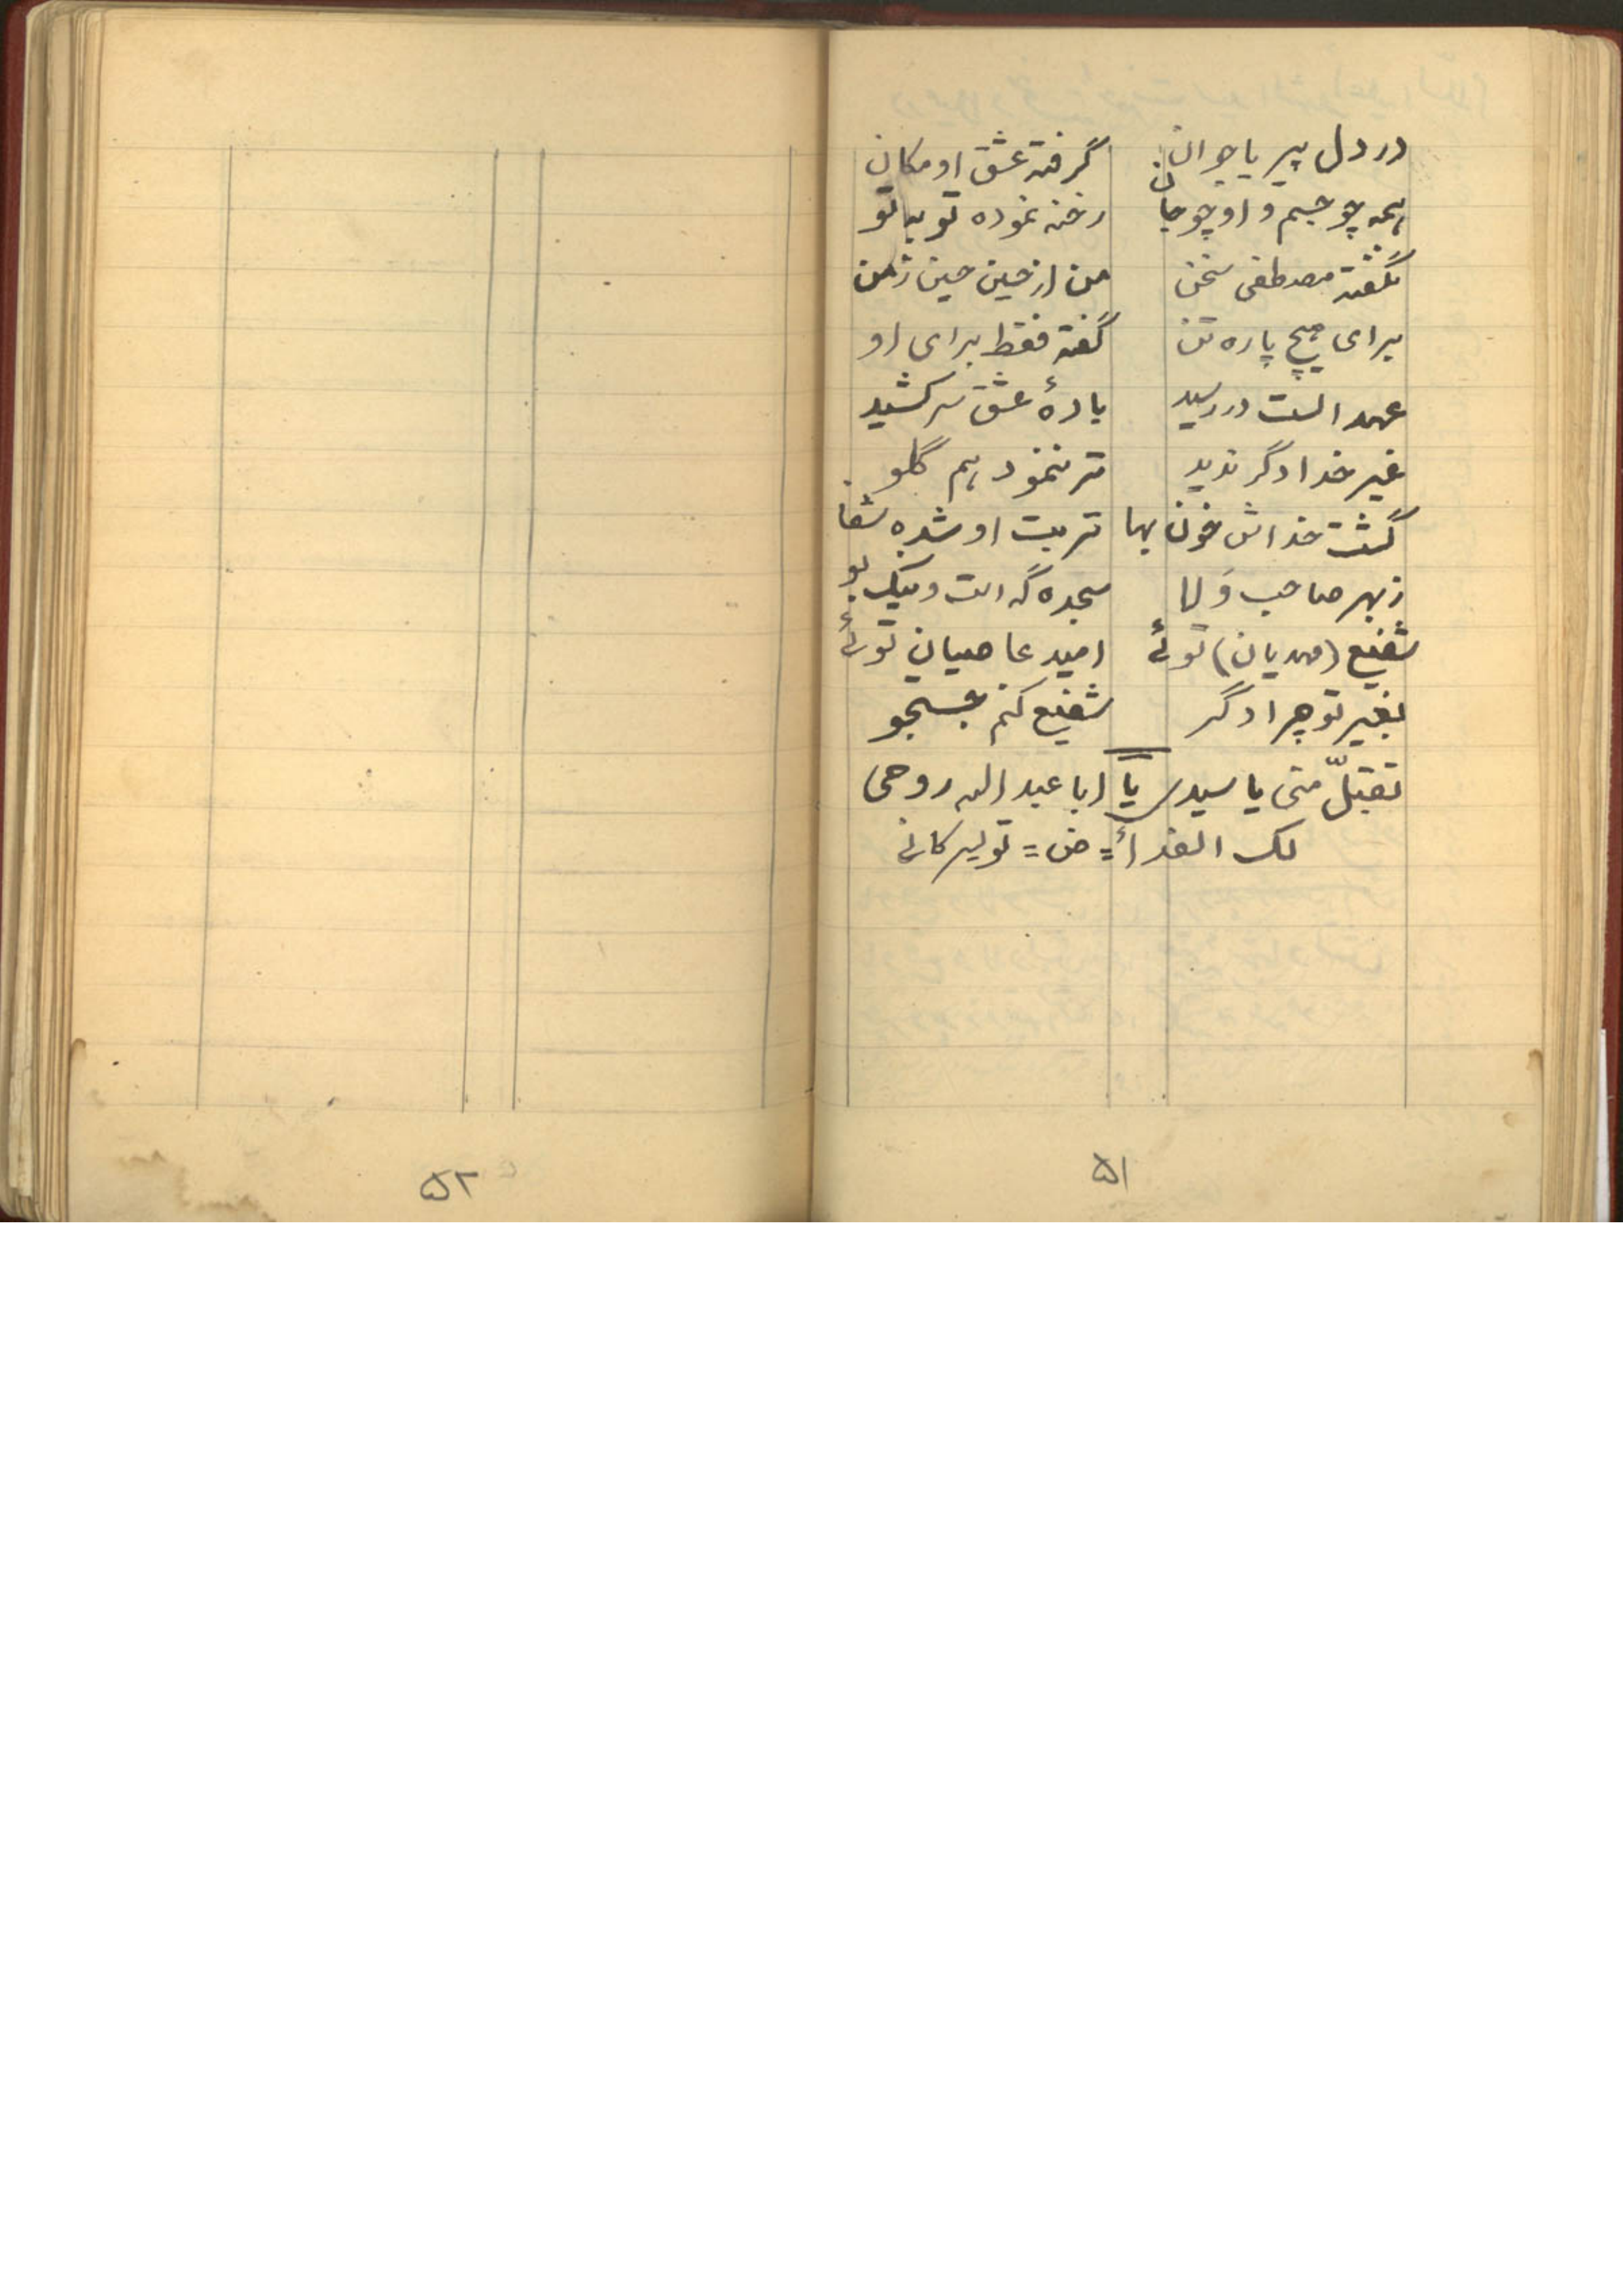 در دل پیر یا جوان گرفته عشق او مکان
همه چو جسم و او چو جان رخنه نموده تو به تو
بگفته مصطفی سخن من از حسین حسین ز من
برای هیچ پاره تن گفته فقط برای او
عهد الست در رسید بادهٔ عشق سر کشید
غیر خدا دگر ندید تر ننمود هم گلو
گشت خداش خون بها تربت او شده شفا
زبهر صاحب وَلا سجده گه است و نیک بو
شفیع (مهدیان) توئی امید عاصیان توئی
بغیر تو چرا دگر شفیع کنم جستجو
تقبلّ منی یا سیدی یا ابا عبد الله روحی
لک الفدأ = = تولیر کانی
۵۱
۵۲